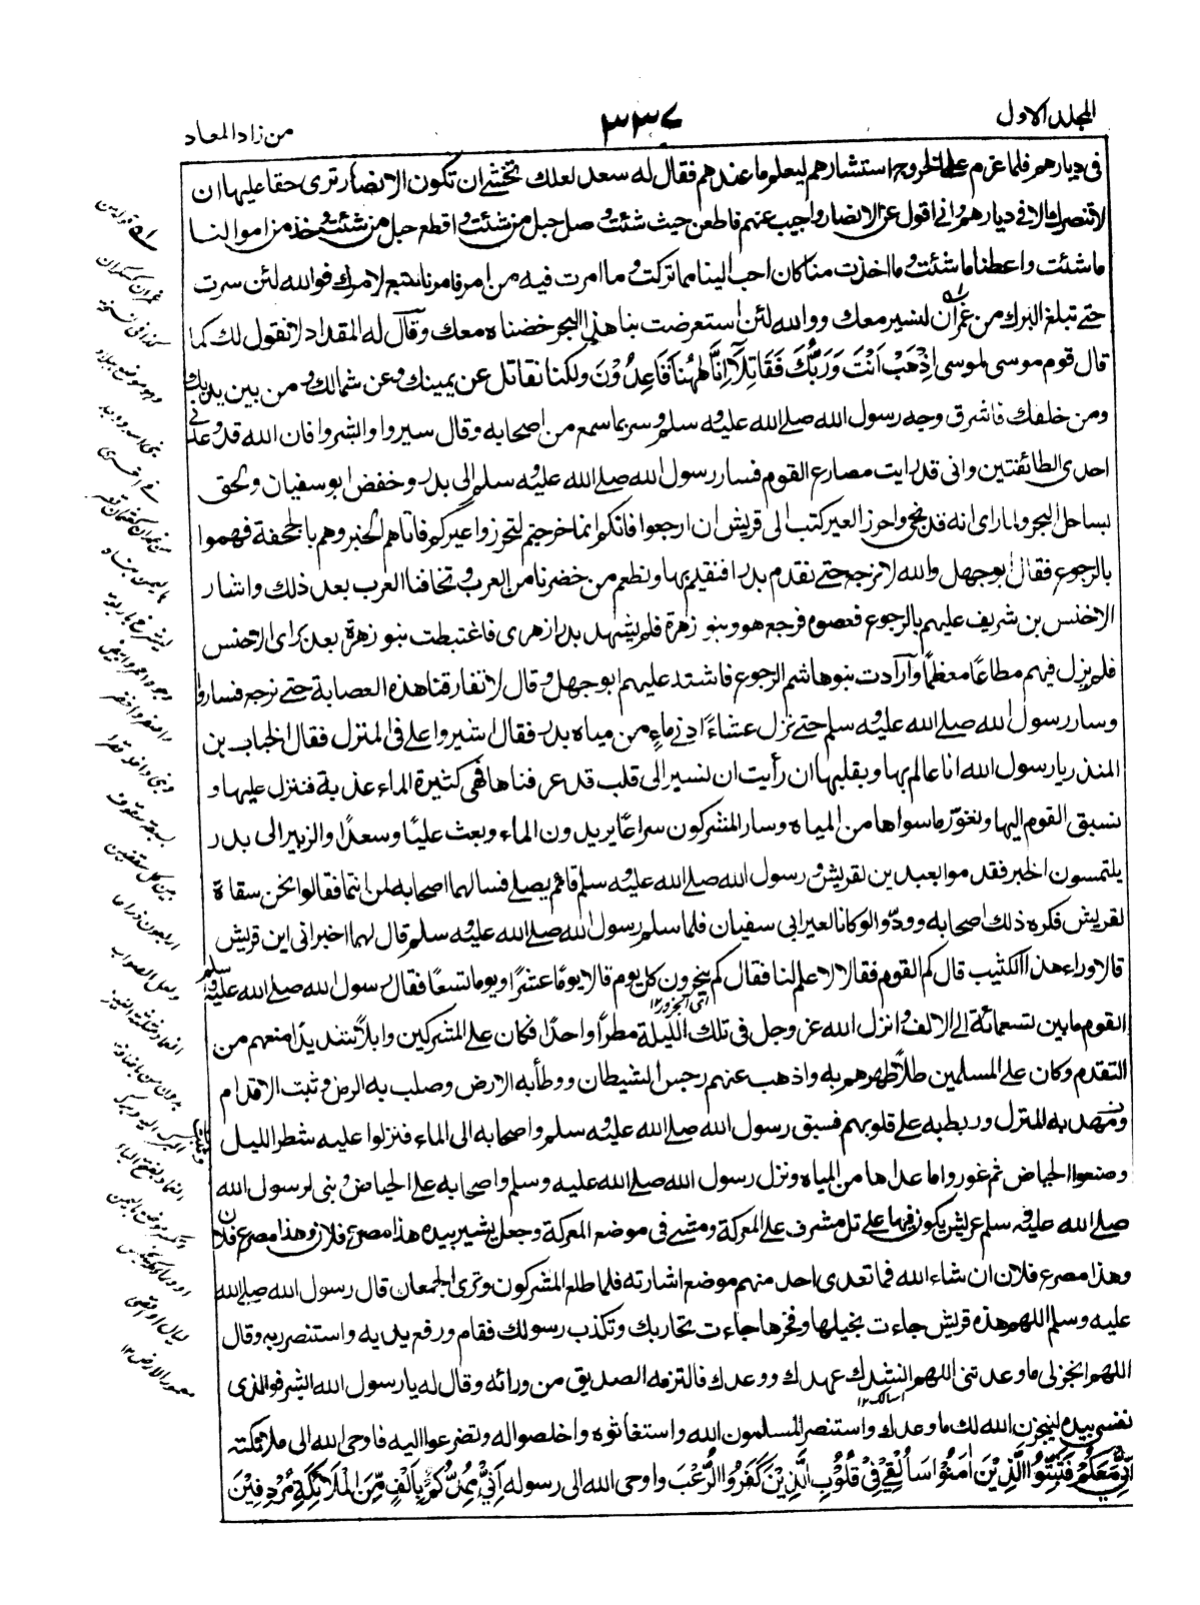 المجلد الاول
٣٣٧
من زاد المعاد
فى ديارهم فلما عزم على الخروج استشارهم ليعلم ما عندهم فقال له سعد لعلك تخشى ان تكون الانصار ترى حقا عليها ان
لا تنصرك الا فى ديارهم وانى اقول عن الانصار واجيب عنهم فاظعن حيث شئت وصل حبل من شئت واقطع حبل من شئت وخذ من اموالنا
ما شئت واعطنا ما شئت وما اخذت منا كان احب الينا مما تركت وما امرت فيه من امر فامرنا تبع لامرك فوالله لئن سرت
حتى تبلغ البرك من غمران لنسير معك ووالله لئن استعرضت بنا هذا البحر خضناه معك وقال له المقداد لا نقول لك كما
قال قوم موسى لموسى اِذْهَبْ اَنْتَ وَرَبُّكَ فَقَاتِلَآ اِنَّا هٰهُنَا قَاعِدُوْنَ ولكنا نقاتل عن يمينك وعن شمالك ومن بين يديك
ومن خلفك فاشرق وجه رسول الله صلى الله عليه وسلم وسر بما سمع من اصحابه وقال سيروا وابشروا فان الله قد وعدنى
احدى الطائفتين وانى قد رايت مصارع القوم فسار رسول الله صلى الله عليه وسلم الى بدر وخفض ابو سفيان ولحق
بساحل البحر ولما راى انه قد نجى واحرز العير كتب الى قريش ان ارجعوا فانكم انما خرجتم لتحرزوا عيركم فاتاهم الخبر وهم بالجحفة فهموا
بالرجوع فقال ابو جهل والله لا نرجع حتى نقدم بدرا فنقيم بها ونطعم من حضرنا من العرب وتخافنا العرب بعد ذلك واشار
الاخنس بن شريف عليهم بالرجوع فعصوه فرجع هو وبنو زهرة فلم يشهد بدرا زهرى فاغتبطت بنو زهرة بعد برأى الاخنس
فلم يزل فيهم مطاعًا معظمًا وآرادت بنو هاشم الرجوع فاشتد عليهم ابو جهل وقال لا تفارقنا هذه العصابة حتى نرجع فساروا
وسار رسول الله صلى الله عليه وسلم حتى نزل عشاءً ادنى ماء من مياه بدر فقال اشيروا على فى المنزل فقال الخباب بن
المنذر يا رسول الله انا عالم بها وبقلبها ان رأيت ان نسير الى قلب قد عرفناها فهى كثيرة الماء عذبة فننزل عليها و
نسبق القوم اليها ونغوّر ما سواها من المياه وسار المشركون سراعًا يريدون الماء وبعث عليًا وسعدًا والزبير الى بدر
يلتمسون الخبر فقدموا بعبدين لقريش ورسول الله صلى الله عليه وسلم قائم يصلى فسالهما اصحابه لمن انتما فقالوا نحن سقاة
لقريش فكره ذلك اصحابه وودّوا لو كانا لعير ابى سفيان فلما سلم رسول الله صلى الله عليه وسلم قال لهما اخبرانى اين قريش
قالا وراء هذا الكثيب قال كم القوم فقالا لا علم لنا فقال كم ينحرون كل يوم قالا يومًا عشرًا ويوما تسعًا فقال رسول الله صلى الله عليه وسلم
اى الجزور ١٢
القوم ما بين تسعمائة الى الالف وانزل الله عز وجل فى تلك الليلة مطرًا واحدًا فكان على المشركين وابلاً شديدًا منعهم من
التقدم وكان على المسلمين طلاً طهرهم به واذهب عنهم رجس الشيطان ووطأ به الارض وصلب به الرمل وثبت الاقدام
ومهد به المنزل وربط به على قلوبهم فسبق رسول الله صلى الله عليه وسلم واصحابه الى الماء فنزلوا عليه شطر الليل
وصنعوا الحياض ثم غوروا ما عداها من المياه ونزل رسول الله صلى الله عليه وسلم واصحابه على الحياض وبنى لرسول الله
صلى الله عليه وسلم عريش يكون فيها على تل مشرف على المعركة ومشى فى موضع المعركة وجعل يشير بيده هذا مصرع فلان وهذا مصرع فلان
وهذا مصرع فلان ان شاء الله فما تعدى احد منهم موضع اشارته فلما طلع المشركون وترى الجمعان قال رسول الله صلى الله
عليه وسلم اللهم هذه قريش جاءت بخيلها وفخرها جاءت تحاربك وتكذب رسولك فقام ورفع يديه واستنصر ربه وقال
اللهم انجز لى ما وعدتنى اللهم انشدك عهدك ووعدك فالتزمه الصديق من ورائه وقال له يا رسول الله ابشر فوالذى
اسالك ١٢
نفسى بيده لينجزن الله لك ما وعدك واستنصر المسلمون الله واستغاثوه واخلصوا له وتضرعوا اليه فاوحى الله الى ملائكته
اَنِّىْ مَعَكُمْ فَثَبِّتُوا الَّذِيْنَ اٰمَنُوْا سَأُلْقِىْ فِىْ قُلُوْبِ الَّذِيْنَ كَفَرُوا الرُّعْبَ واوحى الله الى رسوله اَنِّىْ مُمِدُّكُمْ بِاَلْفٍ مِّنَ الْمَلَآئِكَةِ مُرْدِفِيْنَ